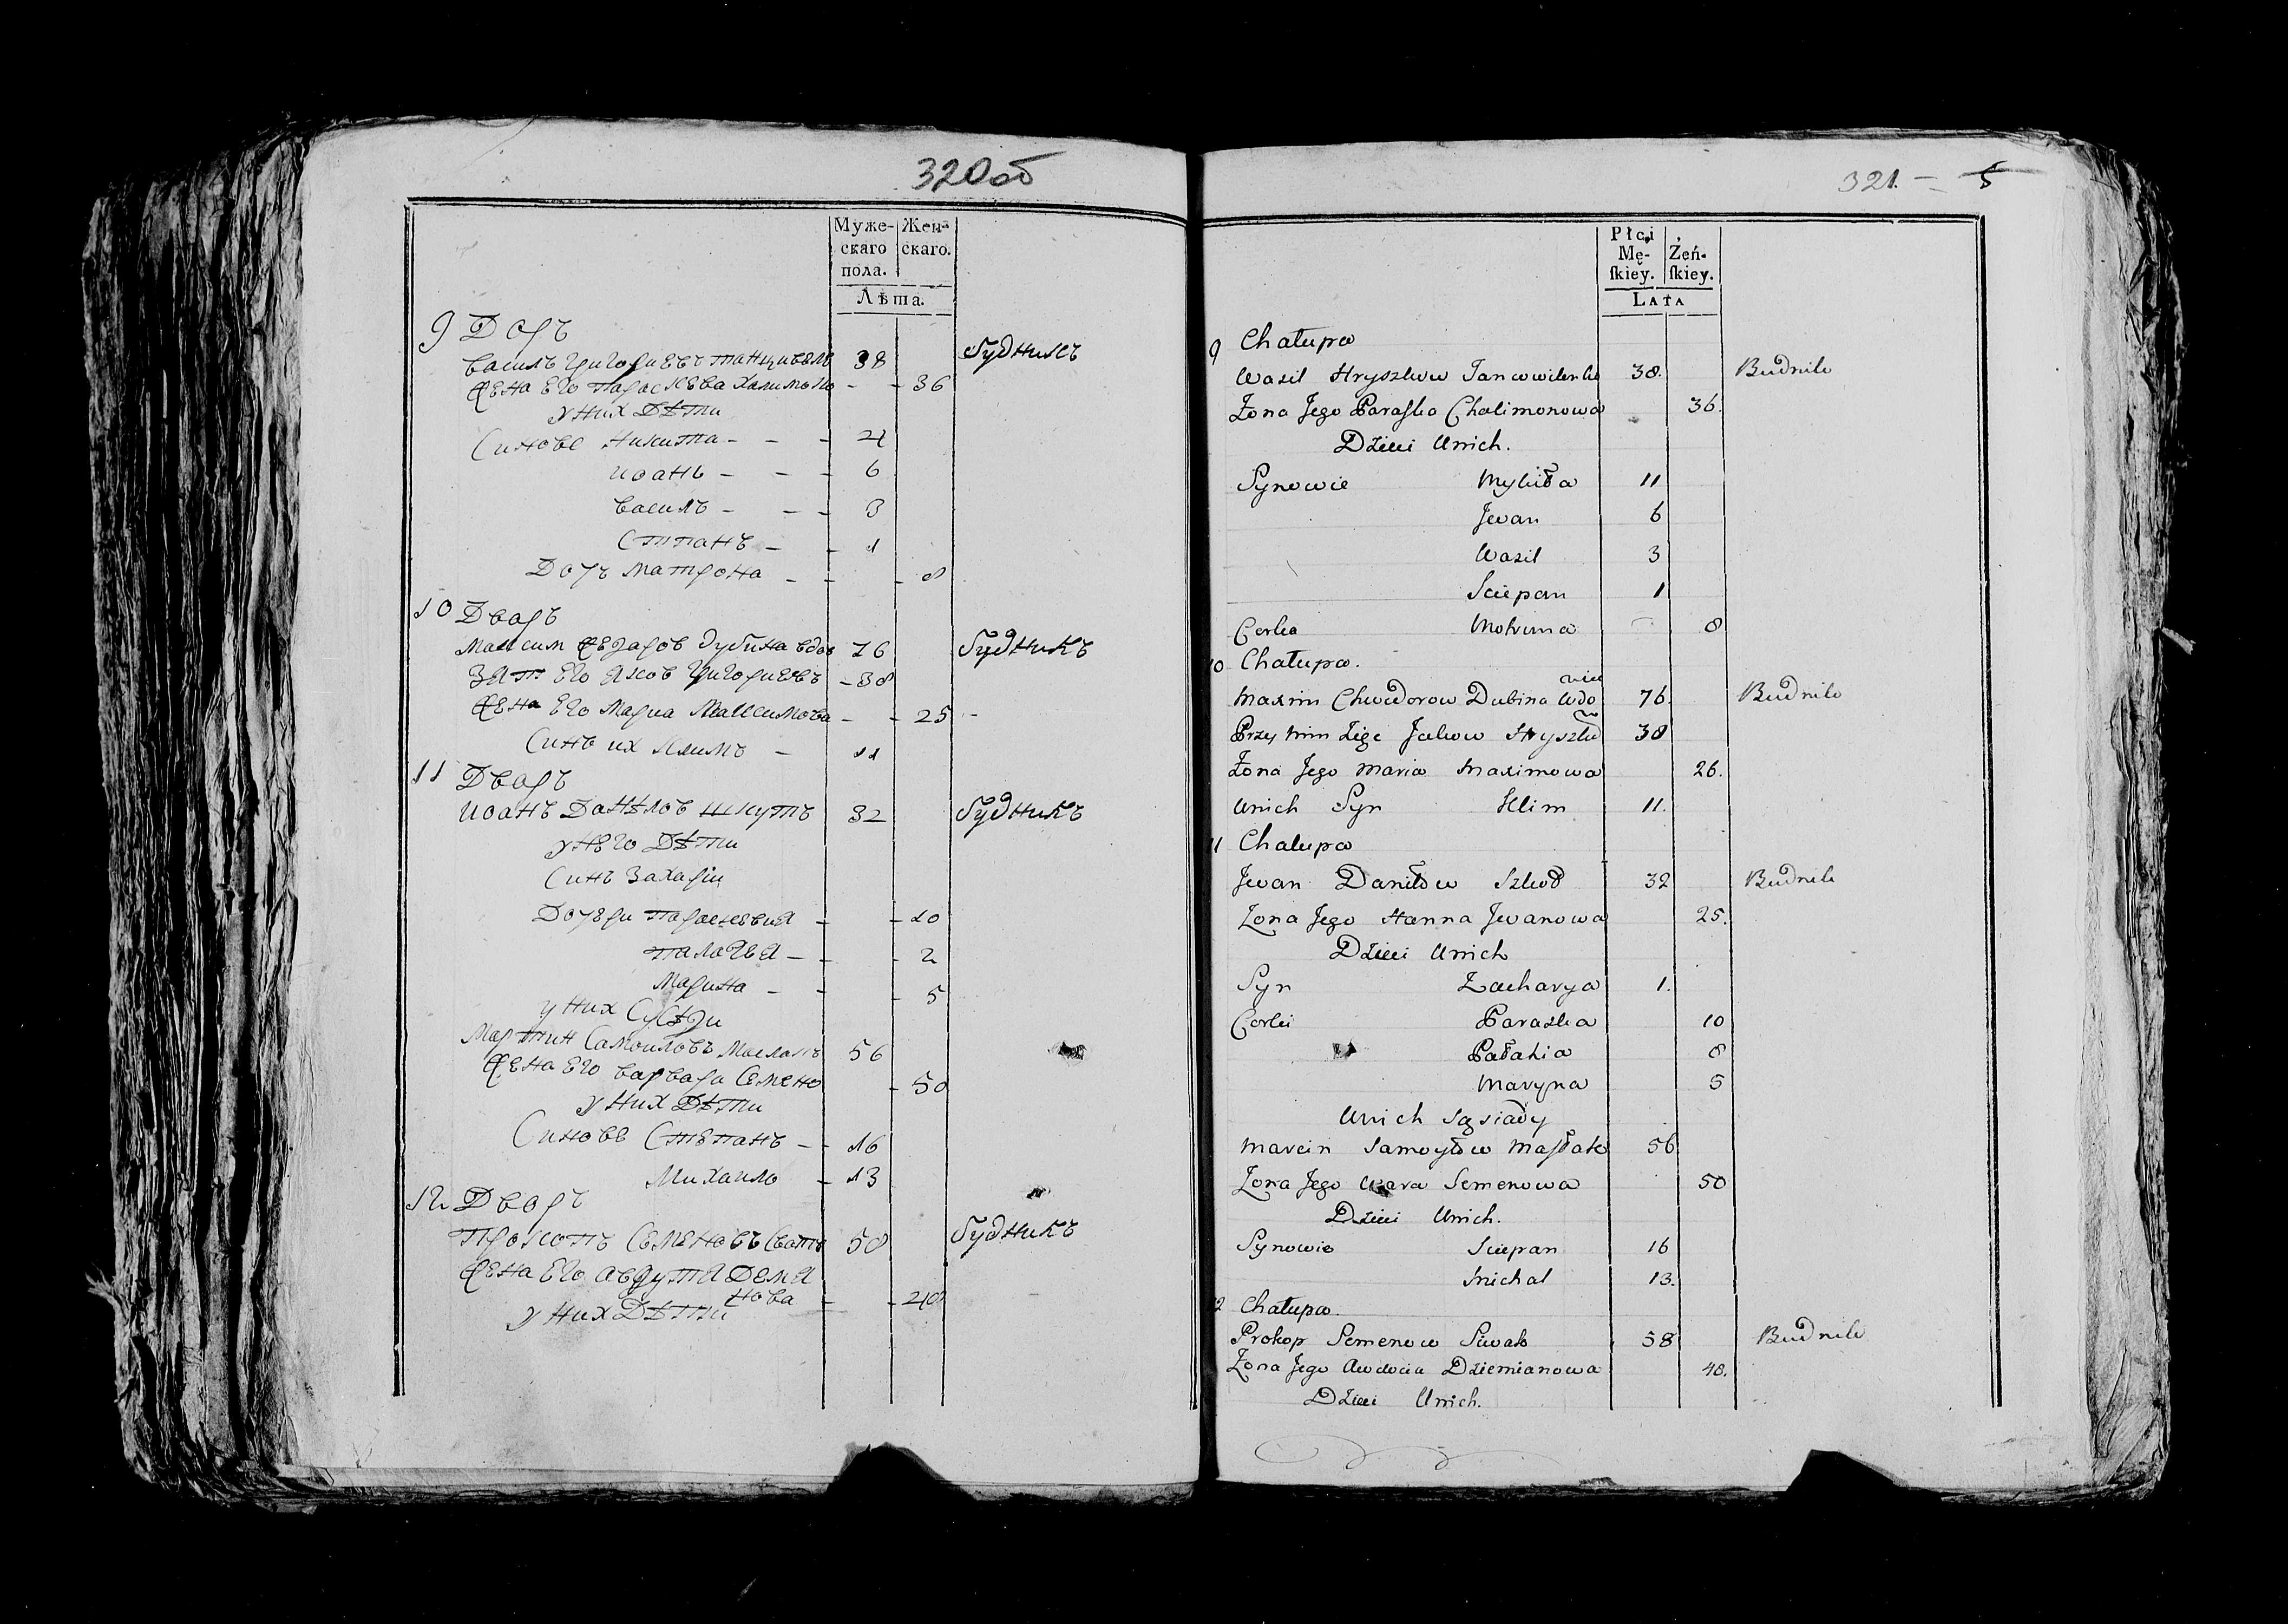 320об
Муже- Жен-
скаго скаго.
пола.
Лѣта.
9 Дворъ
василь григориевъ 38 Будникъ
жена его параскева 36
у них дѣти
Синове никита - - - 21
иоанъ - - - 6
василъ - - - 3
Стпанъ - - 1
Дочъ матрона - - - 8
10 Дворъ
Максим Дубина вдов 76 Будникъ
Зят его яков григориевъ - 38
жена его мариа Максимова - - 25 -
Синъ их климъ - 11
11 Дворъ
иоанъ Данѣловъ шкутъ 32 Будникъ
у него дѣти
Синъ Захарiи
Дочери параскевиа - - 10
палагъя - - - 2
Марина - - - 5
у них Сусѣди
Мартин Самоиловъ 56
жена его варвара Семено - 50
у них Дѣти
Синове Степанъ - - 16
Михаило - 13
12 Дворъ
Прокопъ Семеновъ 58 Будникъ
жена его Демя
нова - - 40
у них Дѣти
321. - 5
Płci
Mę- Żeń-
skiey. skiey.
LATA
9 Chałupa
Wasil Hryszkow 38. Budnik
Żona Jego Paraska Chalimonowa 36.
Dzieci Unich.
Synowie Mykita 11
Jwan 6
Wasil 3
Sciepan 1
Corka 8
10 Chałupa.
wiec
Maxim Chwedorow Dubina Wdo 76. Budnik
Przy nim Zięć Jakow Hryszkow 38
Żona Jego Maria Maximowa 26.
Unich Syn Klim 11.
11 Chałupa
Jwan Daniłow 32 Budnik
Żona Jego Hanna Jwanowa 25.
Dzieci Unich
Syn Zacharya 1.
Corki Paraska 10
Pałahia 8
Maryna 5
Unich Sąsiady
Marcin Samoyłow Masłak 56
Żona Jego Wara Semenowa 50
Dzieci Unich.
Synowie Sciepan 16
Michał 13.
12 Chałupa.
Prokop Semenow Siwak 58 Budnik
Żona Jego Awdocia Dziemianowa 40.
Dzieci Unich.